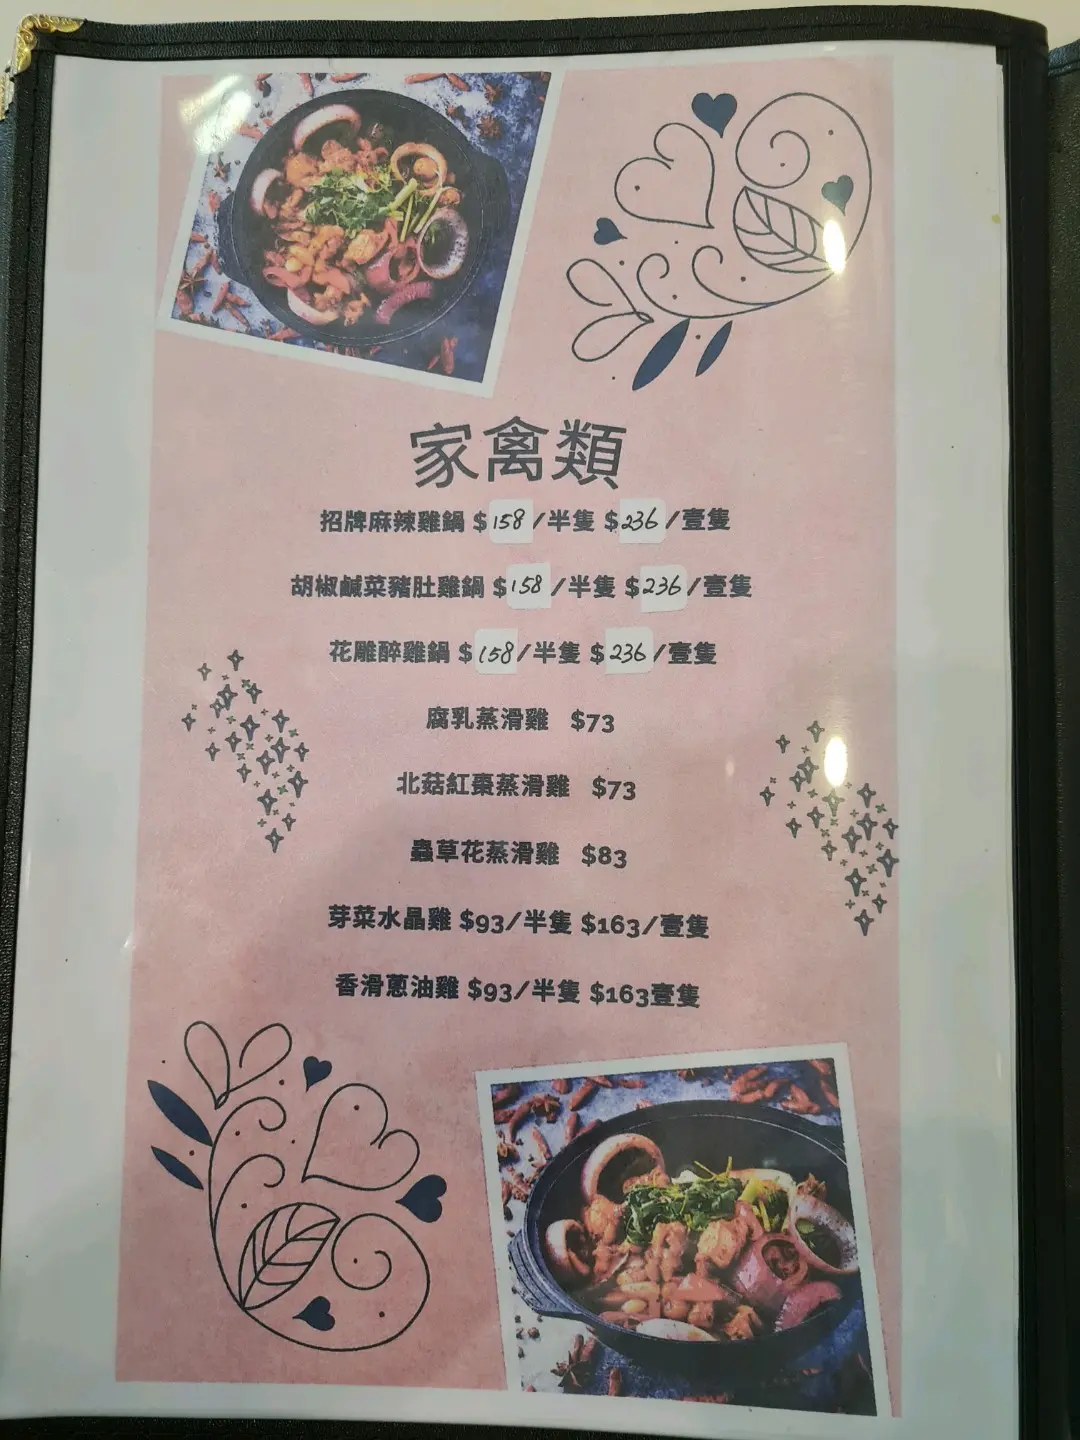 家禽類
招牌麻辣雞鍋 $158/半隻 $236/壹隻
胡椒鹹菜豬肚雞鍋 $158/半隻 $236/壹隻
花雕醉雞鍋 $158/半隻 $236/壹隻
腐乳蒸滑雞 $73
北菇紅棗蒸滑雞 $73
蟲草花蒸滑雞 $83
芽菜水晶雞 $93/半隻 $163/壹隻
香滑蔥油雞 $93/半隻 $163壹隻